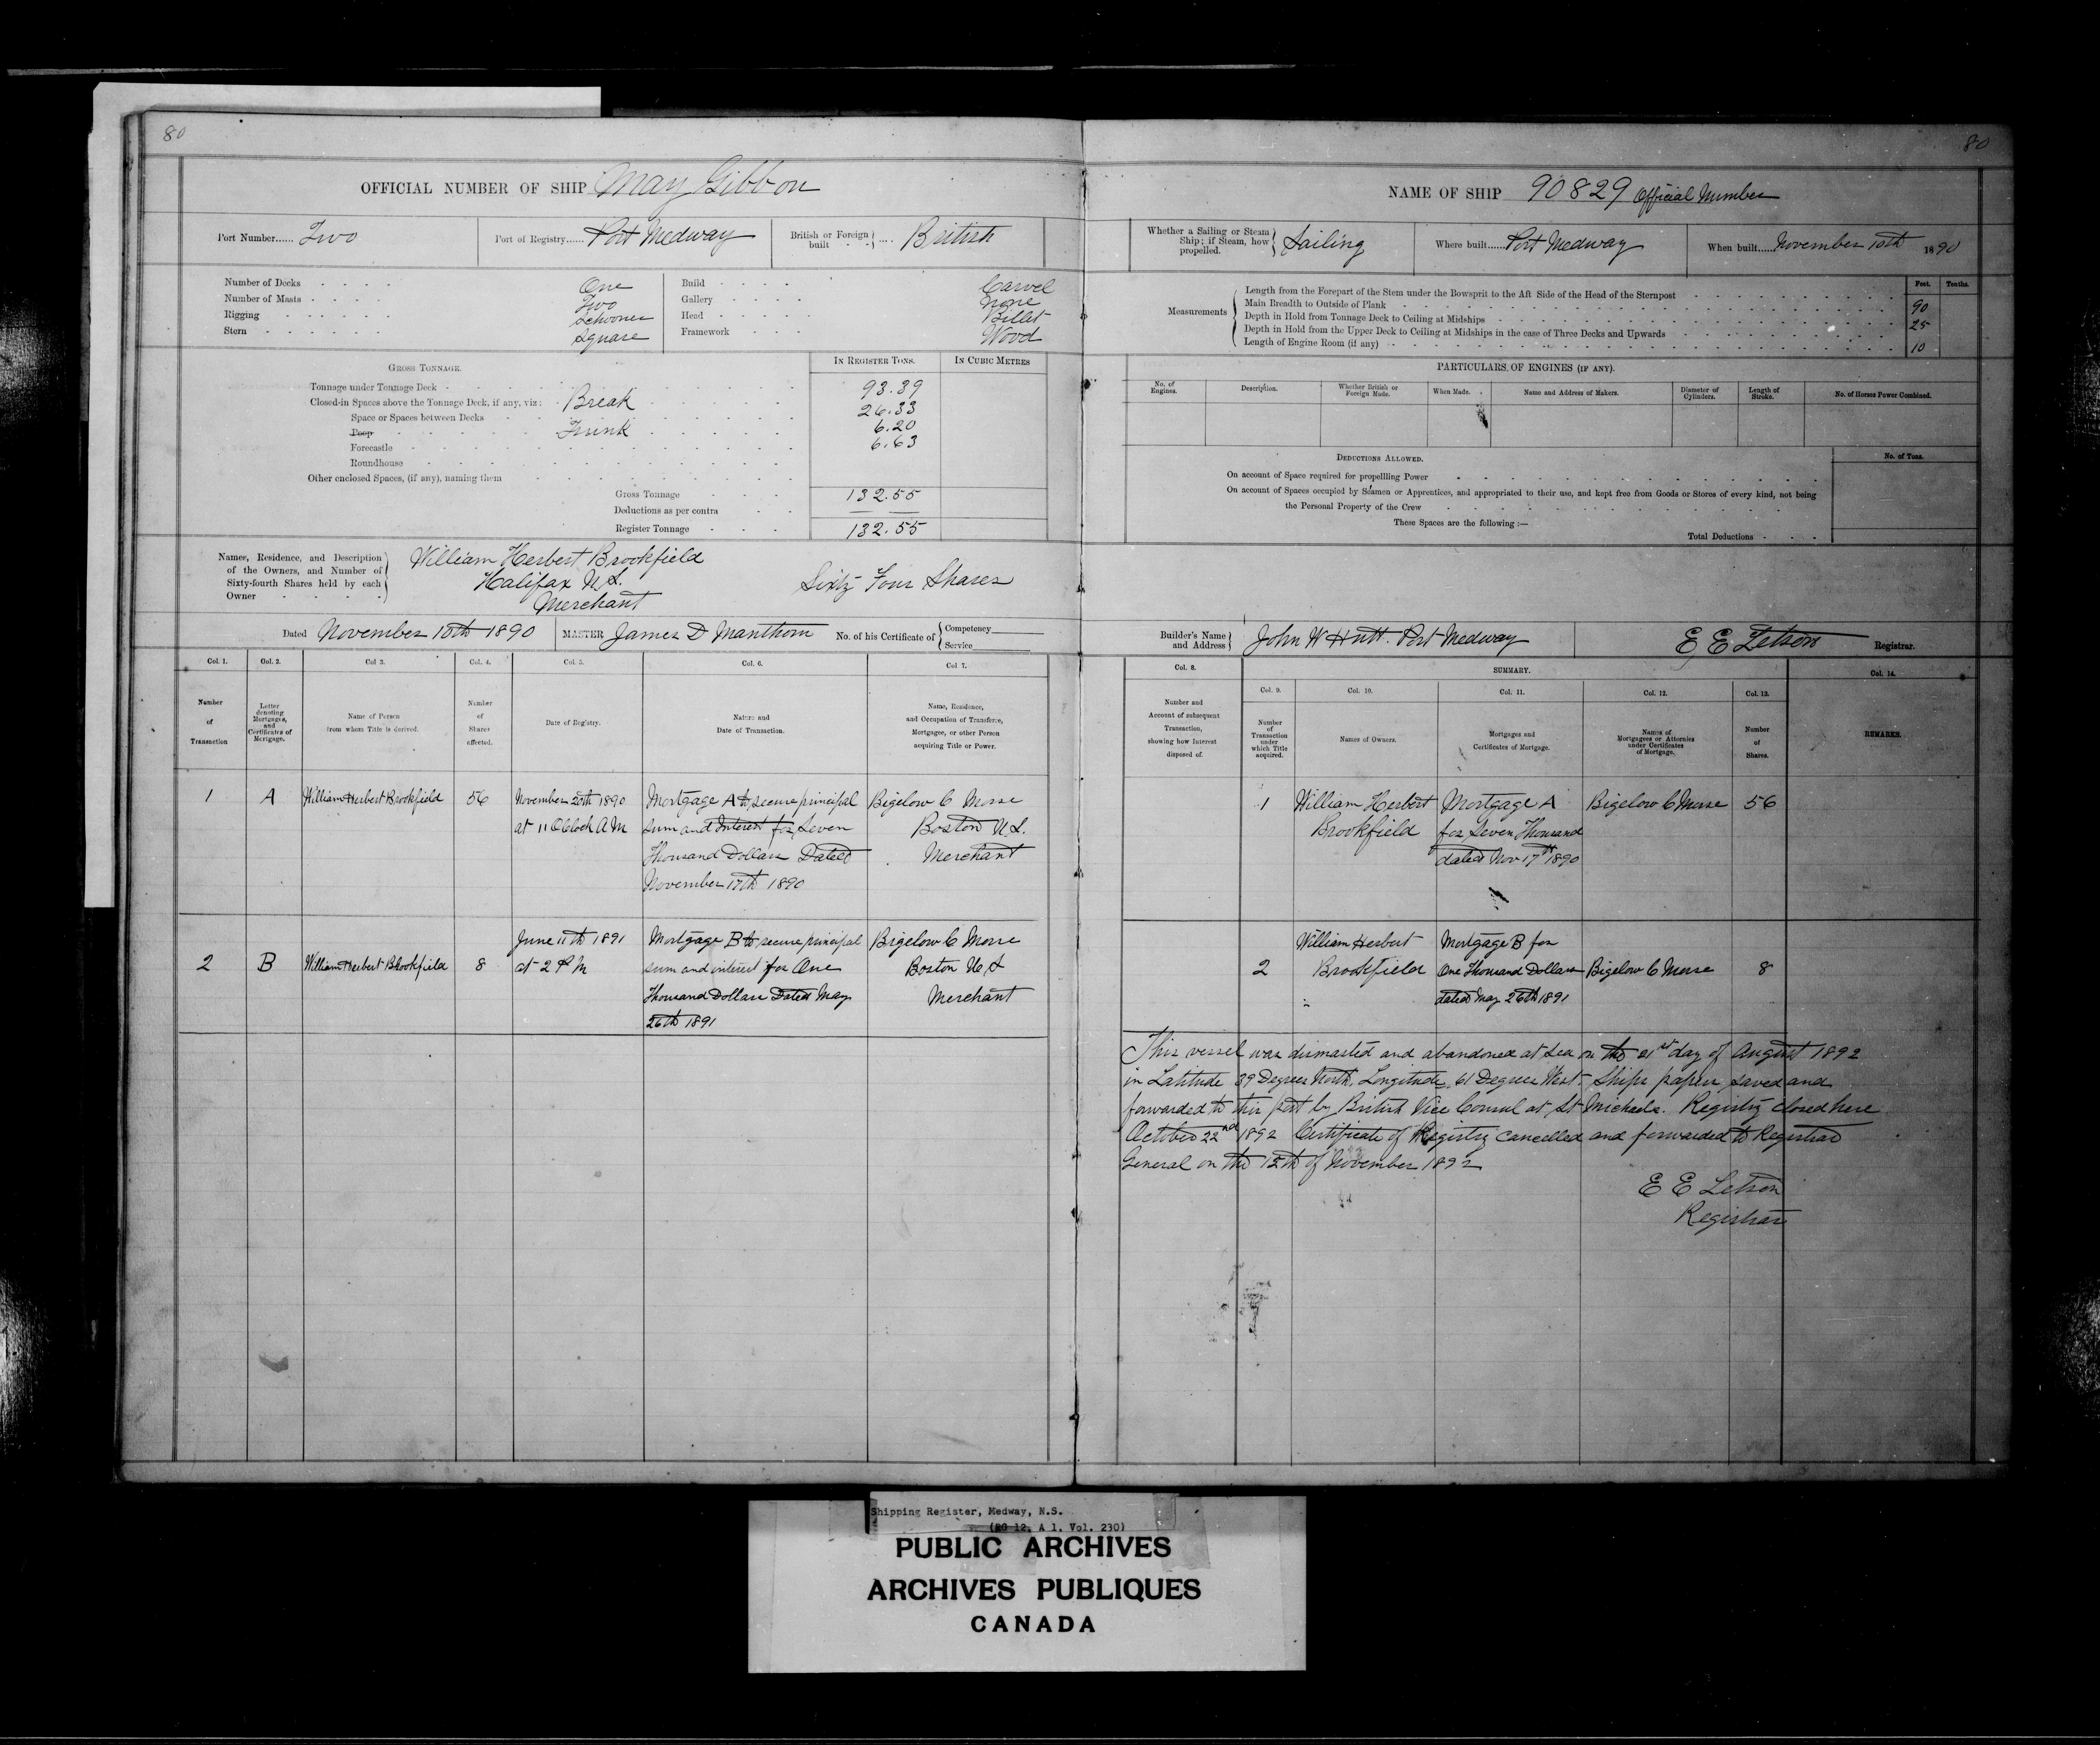 80
OFFICIAL NUMBER OF SHIP May Gibbon
Port Number...... Two
Port of Registry...... Port Medway
British or Foreign built .... British
Number of Decks One
Number of Masts Two
Rigging Schooner
Stern Square
Build Carvel
Gallery None
Head Billet
Framework Wood
GROSS TONNAGE.
IN REGISTER TONS.
IN CUBIC METRES
Tonnage under Tonnage Deck 93.39
Closed-in Spaces above the Tonnage Deck, if any, viz: Break 26.33
Space or Spaces between Decks 6.20
Poop Trunk 6.63
Forecastle
Roundhouse
Other enclosed Spaces, (if any), naming them
Gross Tonnage 132.55
Deductions as per contra
Register Tonnage 132.55
Names, Residence, and Description
of the Owners, and Number of
Sixty-fourth Shares held by each
Owner
William Herbert Brookfield
Halifax N.S.
Merchant
Sixty Four Shares
Dated November 10th 1890
MASTER James D Manthorn
No. of his Certificate of Competency
Service
Col. 1.
Col. 2.
Col 3.
Col. 4.
Col. 5.
Col. 6.
Col 7.
Number
of
Transaction
Letter
denoting
Mortgages,
and
Certificates of
Mortgage.
Name of Person
from whom Title is derived.
Number
of
Shares
affected.
Date of Registry.
Nature and
Date of Transaction.
Name, Residence,
and Occupation of Transferee,
Mortgagee, or other Person
acquiring Title or Power.
1
A
William Herbert Brookfield
56
November 20th 1890
at 11 OClock A M
Mortgage A to secure principal
sum and Interest for Seven
Thousand Dollars Dated
November 17th 1890
Bigelow C Morse
Boston U.S.
Merchant
2
B
William Herbert Brookfield
8
June 11th 1891
at 2 P M
Mortgage B to secure principal
sum and interest for One
Thousand Dollars Dated May
26th 1891
Bigelow C Morse
Boston U S
Merchant
80
NAME OF SHIP 90829 Official Number
Whether a Sailing or Steam
Ship; if Steam, how
propelled.
Sailing
Where built..... Port Medway
When built...... November 10th 1890
Measurements
Feet.
Tenths.
Length from the Forepart of the Stem under the Bowsprit to the Aft Side of the Head of the Sternpost
Main Breadth to Outside of Plank 90
Depth in Hold from Tonnage Deck to Ceiling at Midships 25
Depth in Hold from the Upper Deck to Ceiling at Midships in the case of Three Decks and Upwards
Length of Engine Room (if any) 10
PARTICULARS OF ENGINES (IF ANY).
No. of
Engines.
Description.
Whether British or
Foreign Made.
When Made.
Name and Address of Makers.
Diameter of
Cylinders.
Length of
Stroke.
No. of Horses Power Combined.
DEDUCTIONS ALLOWED.
No. of Tons.
On account of Space required for propellling Power
On account of Spaces occupied by Seamen or Apprentices, and appropriated to their use, and kept free from Goods or Stores of every kind, not being
the Personal Property of the Crew
These Spaces are the following :—
Total Deductions
Builder's Name
and Address
John W Hutt. Port Medway
E E Letson Registrar.
Col. 8.
SUMMARY.
Col. 14.
Col. 9.
Col. 10.
Col. 11.
Col. 12.
Col. 13.
Number and
Account of subsequent
Transaction,
showing how Interest
disposed of.
Number
of
Transaction
under
which Title
acquired.
Names of Owners.
Mortgages and
Certificates of Mortgage.
Names of
Mortgagees or Attornies
under Certificates
of Mortgage.
Number
of
Shares.
REMARKS.
1
William Herbert
Brookfield
Mortgage A
for Seven Thousand
dated Nov 17th 1890
Bigelow C Morse
56
2
William Herbert
Brookfield
Mortgage B for
One Thousand Dollars
dated May 26th 1891
Bigelow C Morse
8
This vessel was dismasted and abandoned at Sea on the 21st day of August 1892
in Latitude 39 Degrees North, Longitude 61 Degrees West. Ships papers saved and
forwarded to this port by British Vice Consul at St Michaels. Registry closed here
October 22nd 1892 Certificate of Registry cancelled and forwarded to Registrar
General on the 15th of November 1892
E E Letson
Registrar
Shipping Register, Medway, N.S.
(RG 12, A 1, Vol. 230)
PUBLIC ARCHIVES
ARCHIVES PUBLIQUES
CANADA